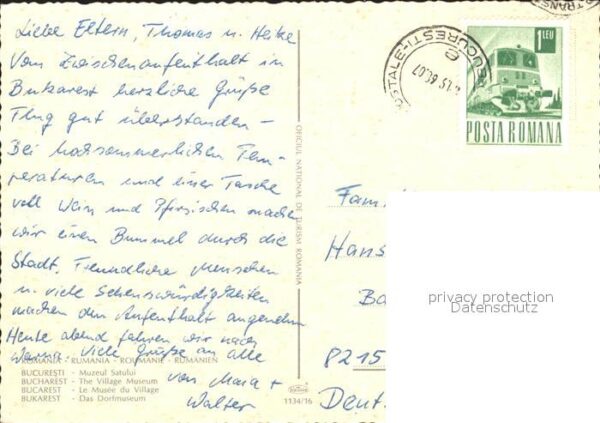 Liebe Eltern, Thomas u. Heike
Vom Zwischenaufenthalt in
Bukarest herzliche Grüße
Flug gut überstanden –
Bei hochsommerlichen Tem-
peraturen und einer Tasche
voll Wein und Pfirsischen machen
wir einen Bummel durch die
Stadt. Freundliche Menschen
u. viele Sehenswürdigkeiten
machen den Aufenthalt angenehm
Heute abend fahren wir nach
Warna. Viele Grüße an alle
von Maria +
Walter
ROMANIA - RUMANIA - ROUMANIE - RUMÄNIEN
BUCUREȘTI - Muzeul Satului
BUCHAREST - The Village Museum
BUCAREST - Le Musée du Village
BUKAREST - Das Dorfmuseum
1134/16
OFICIUL NATIONAL DE TURISM ROMANIA
BUCURESTI
1 LEU
POSTA ROMANA
Fam
Hans
Ba
8215
Deut
privacy protection
Datenschutz